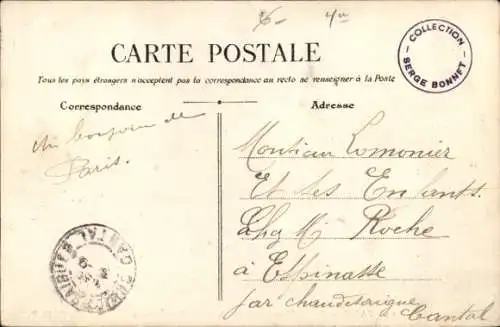 COLLECTION
SERGE BONNET
CARTE POSTALE
Tous les pays étrangers n'acceptent pas la correspondance au recto se renseigner à la Poste
Correspondance
Adresse
Un bonjour de
Paris.
Monsieur Lomonier
Et Ses Enfants.
Chez Mr Roche
à Espinasse
par chaudesaigue
Cantal
CANTAL